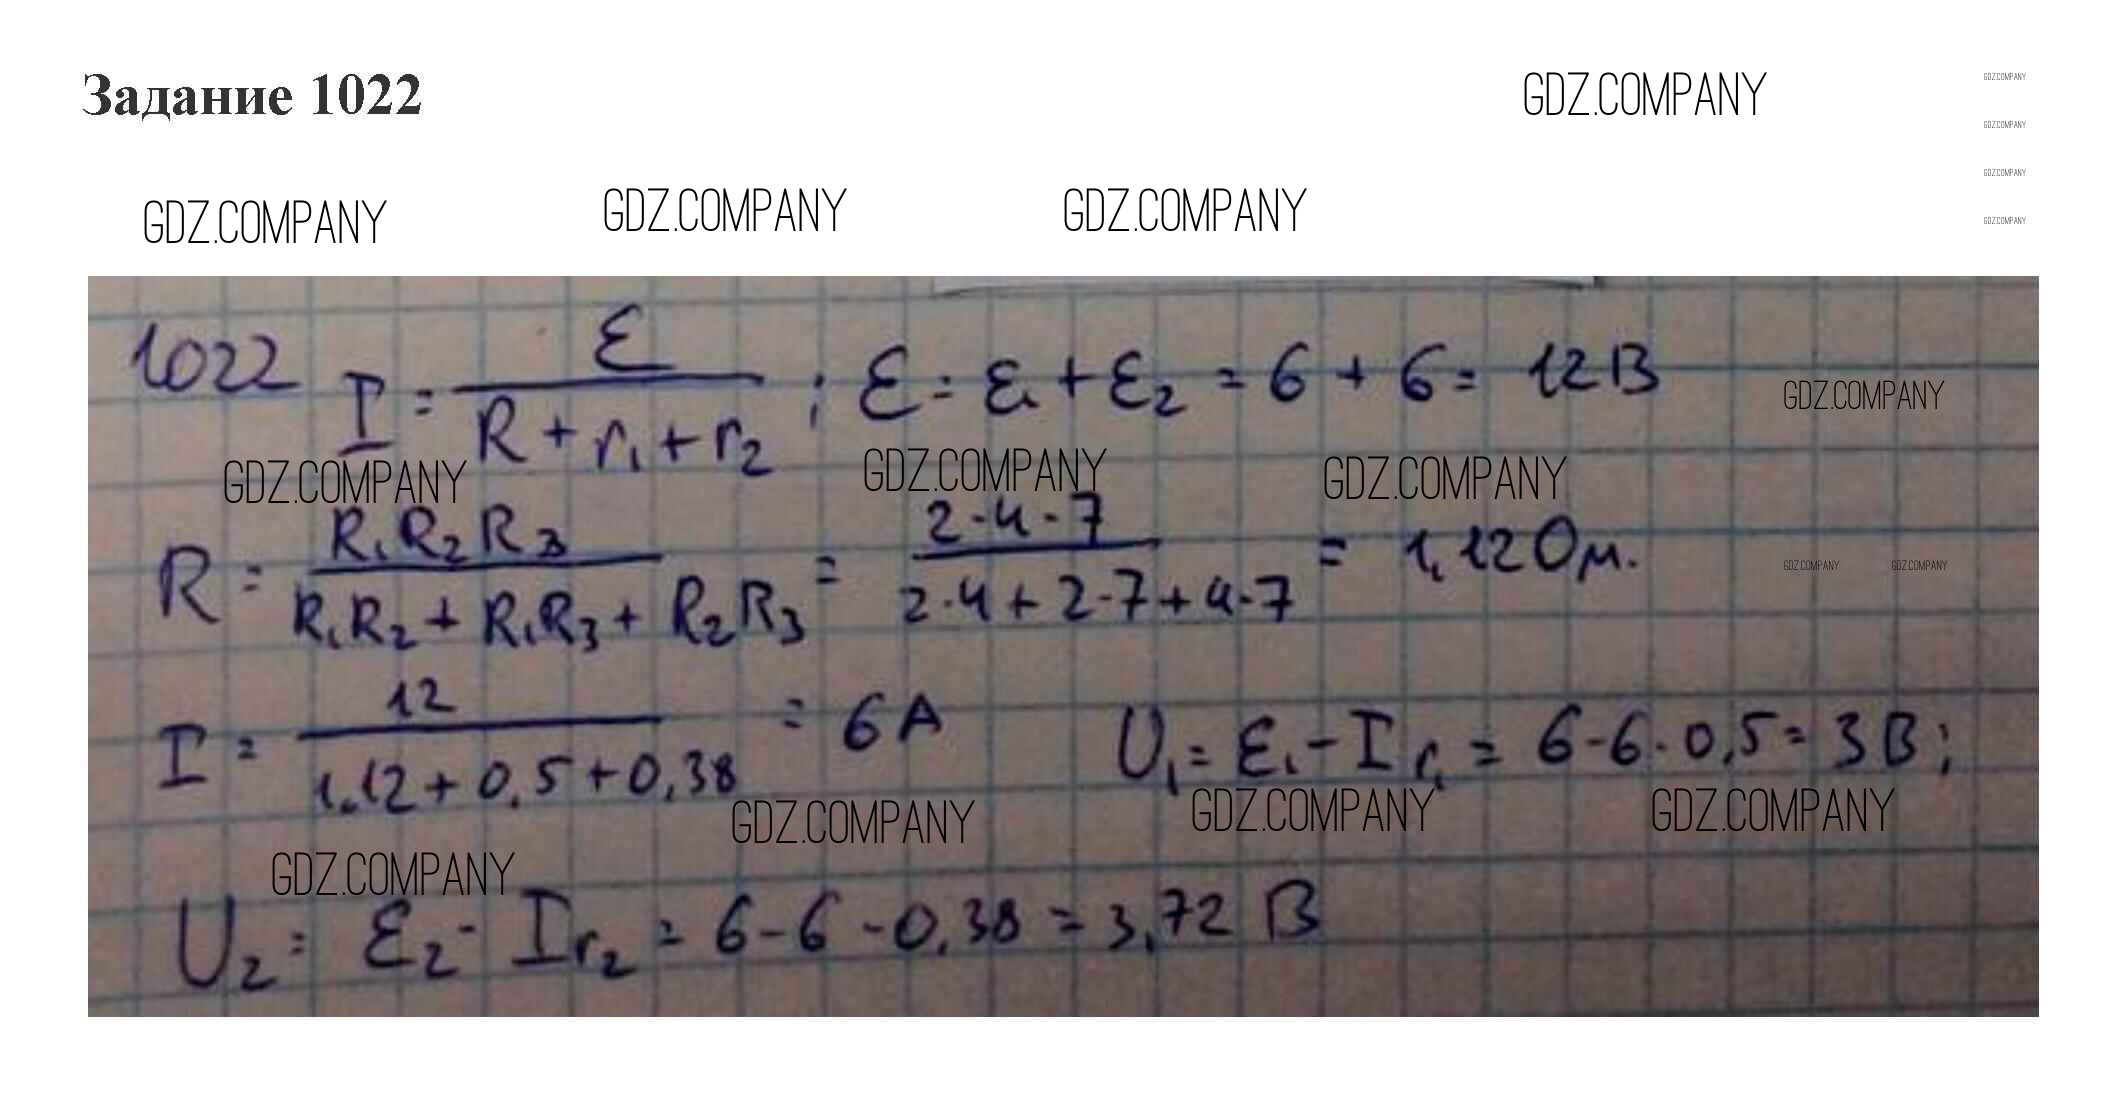 Задание 1022
GDZ.COMPANY
GDZ.COMPANY
GDZ.COMPANY
GDZ.COMPANY
GDZ.COMPANY
GDZ.COMPANY GDZ.COMPANY GDZ.COMPANY
GDZ.COMPANY
1022 I = ℰ / (R + r₁ + r₂) ; ℰ = ℰ₁ + ℰ₂ = 6 + 6 = 12 В
GDZ.COMPANY
GDZ.COMPANY GDZ.COMPANY GDZ.COMPANY
R = R₁R₂R₃ / (R₁R₂ + R₁R₃ + R₂R₃) = 2·4·7 / (2·4 + 2·7 + 4·7) = 1,12 Ом.
GDZ.COMPANY GDZ.COMPANY
I = 12 / (1,12 + 0,5 + 0,38) = 6 А U₁ = ℰ₁ - Ir₁ = 6 - 6·0,5 = 3 В;
GDZ.COMPANY GDZ.COMPANY GDZ.COMPANY
GDZ.COMPANY
U₂ = ℰ₂ - Ir₂ = 6 - 6 - 0,38 = 3,72 В